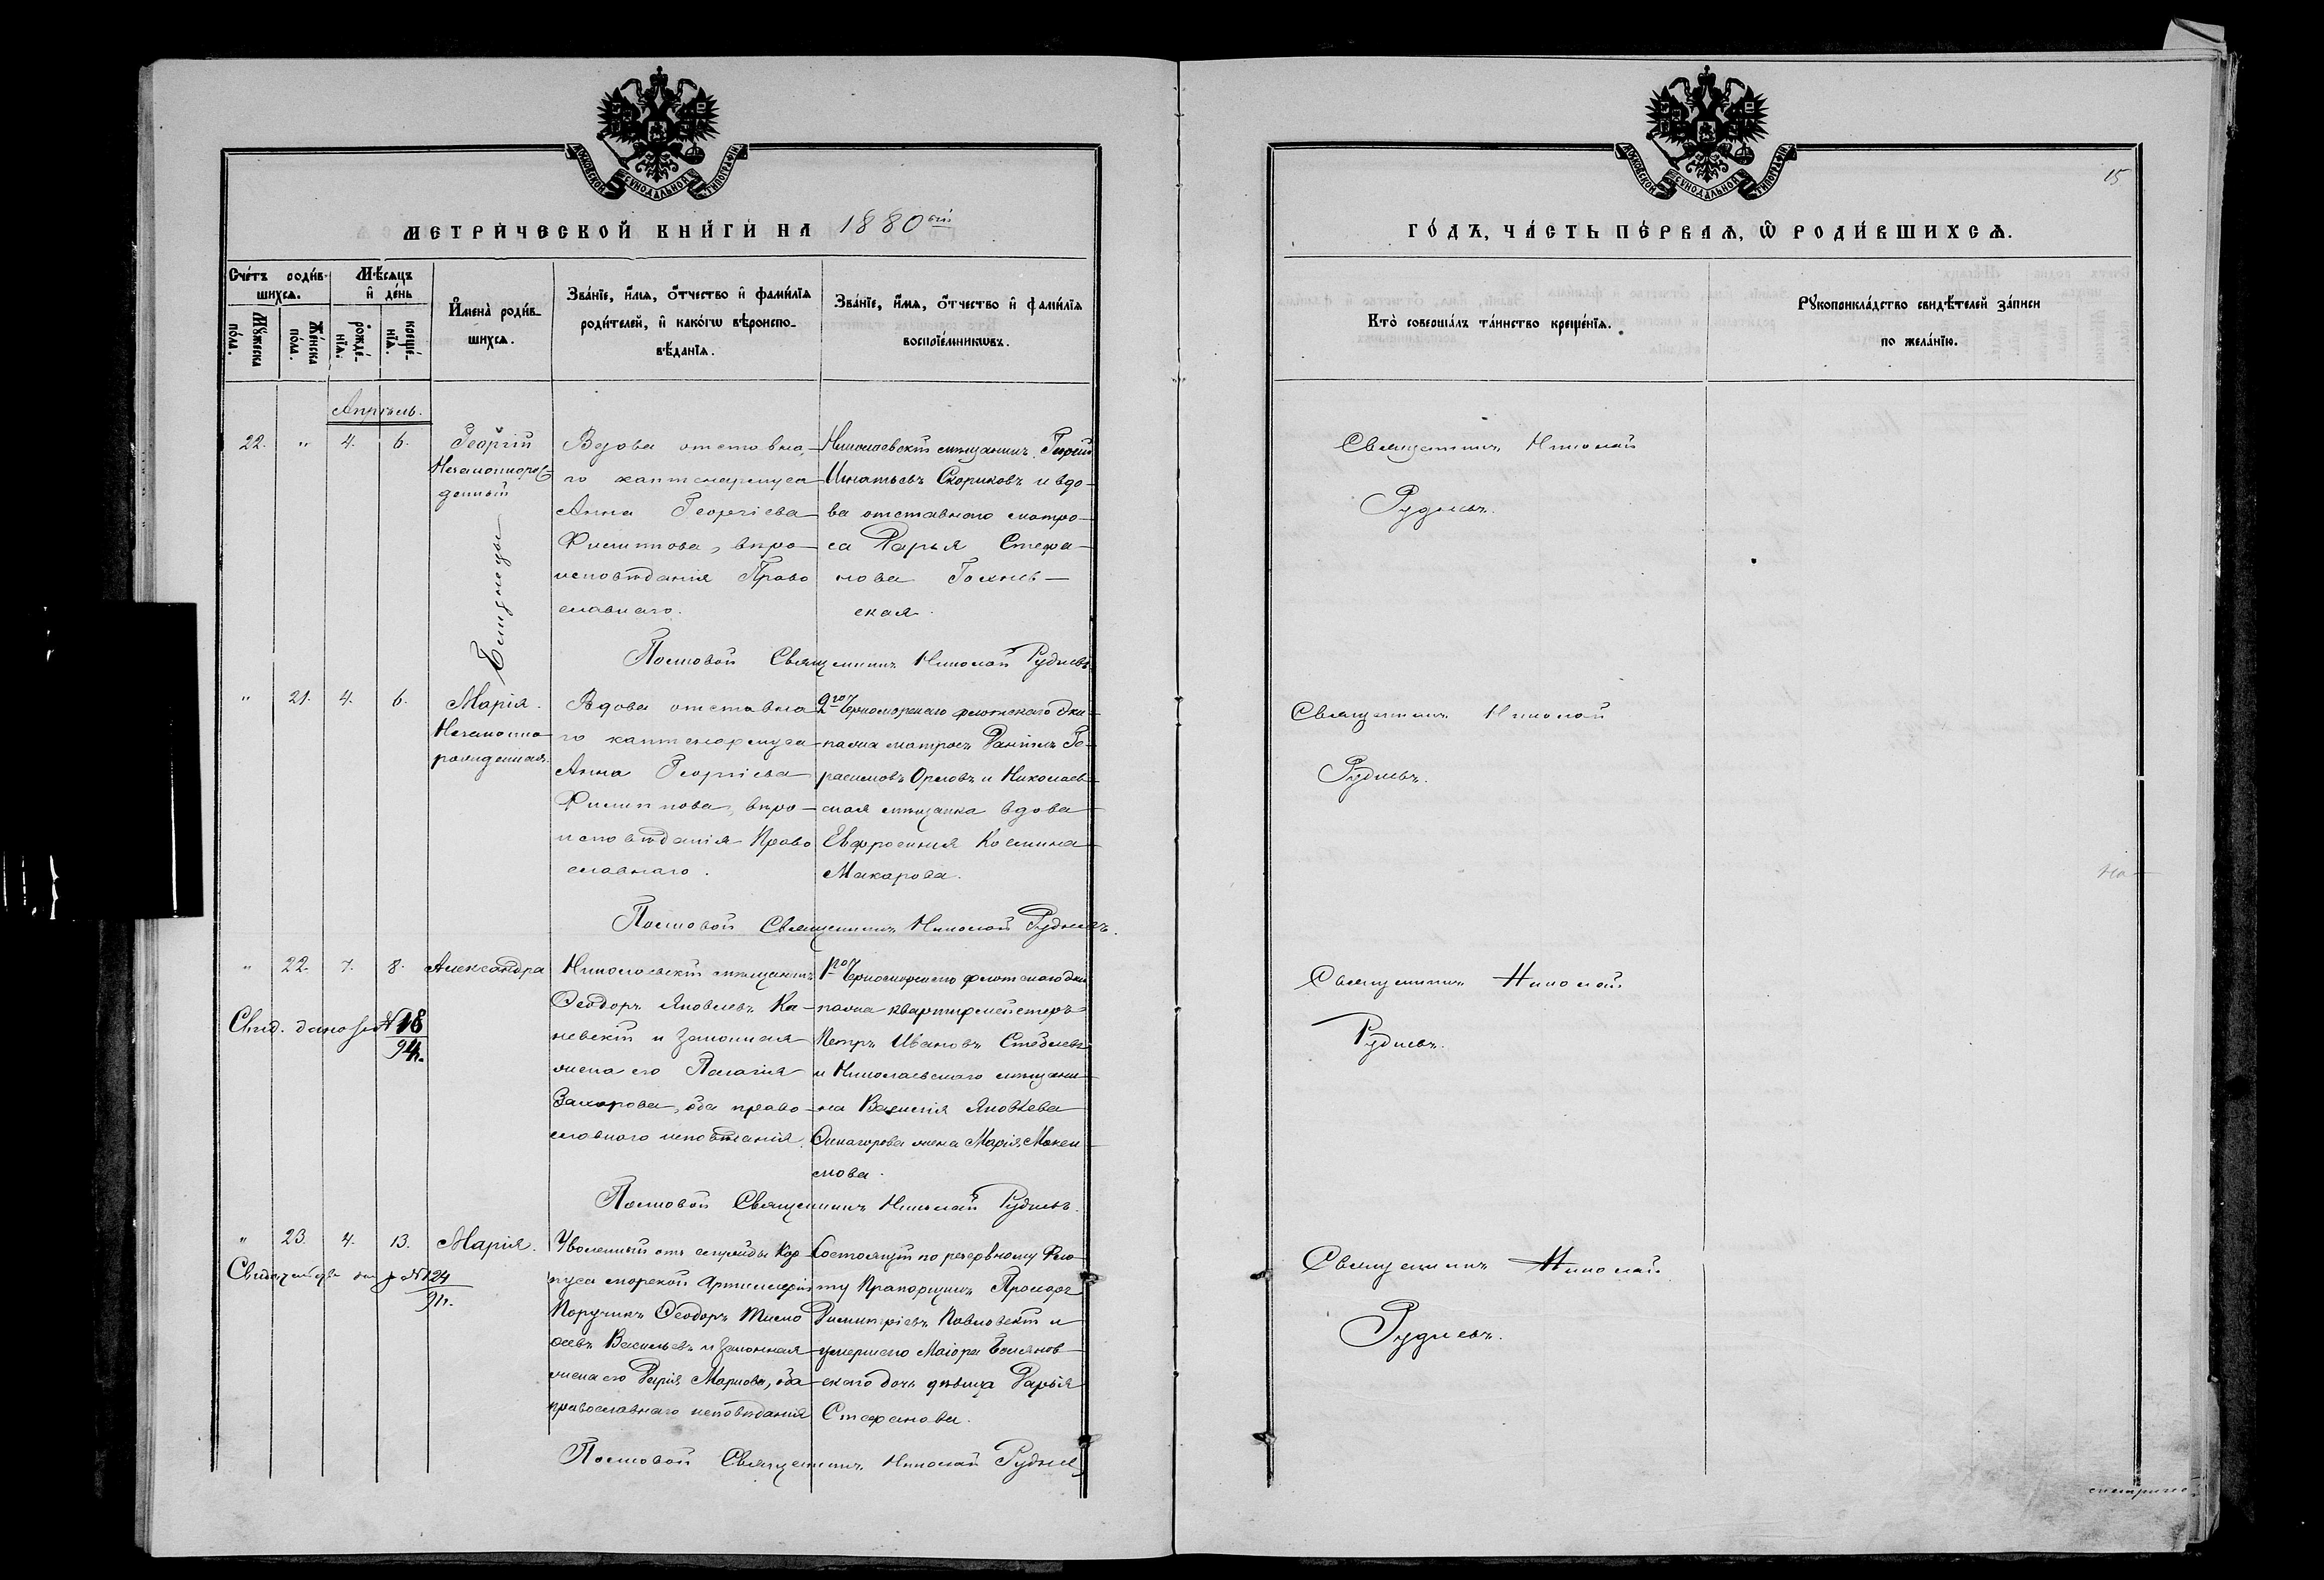 МОСКОВСКОЙ СѴНОДАЛЬНОЙ ТИПОГРАФІИ
МЕТРИ́ЧЕСКОЙ КНИ́ГИ НА 1880ый
Сче́тъ роди́вшихсѧ.
Мꙋ́жеска по́ла.
Же́нска по́ла.
Мѣ́сѧцъ и҆ де́нь
рожде́нїѧ.
креще́нїѧ.
И҆мена̀ роди́вшихсѧ.
Зва́нїе, и҆́мѧ, ѻ҆́тчество и҆ фами́лїѧ
роди́телей, и҆ како́гѡ вѣроиспо-
вѣ́данїѧ.
Зва́нїе, и҆́мѧ, ѻ҆́тчество и҆ фами́лїѧ
воспрїе́мникѡвъ.
Апрѣль.
22. " 4. 6.
Георгій
Незаконорож
денный
Близнецы
Вдова отставна-
го каптенармуса
Анна Георгіева
Филиппова, вѣро-
исповѣданія Право
славнаго.
Николаевскій мѣщанинъ
Игнатьевъ Скориковъ и вдо-
ва отставного матро-
са Дарья Стефа-
нова
ская.
Полковой Священникъ Николай Рудневъ
" 21. 4. 6.
Марія.
Незаконно
рожденная.
Вдова отставна
го каптенармуса
Анна Георгіева
Филиппова, вѣро-
исповѣданія Право
славнаго.
2го Черноморскаго флотскаго Эки-
пажа матросъ Даніилъ Ге-
расимовъ Орловъ и Николаев-
ская мѣщанка вдова
Евфросинія Косьмина
Макарова.
Полковой Священникъ Николай Рудневъ.
" 22. 7. 8.
Александра
Свид. дано за № 18
94г.
Николаевскій мѣщанинъ
Ѳеодоръ Яковлевъ Ка-
невскій и законная
жена его Пелагія
Захарова, оба право-
славного исповѣданія.
1го Черноморскаго флотскаго Эки
пажа квартирмейстеръ
Петръ Ивановъ
и Николаевскаго мѣщани-
на Василія Яковлева
жена Марія Макси-
мова.
Полковой Священникъ Николай Рудневъ.
" 23. 4. 13.
Марія.
№ 124
91г.
Уволенный отъ службы Кор-
пуса морской Артиллеріи
Поручикъ Ѳеодоръ Тимо
ѳеевъ Васильевъ и законная
жена его Дарія Маркова, оба
православнаго исповѣданія
Состоящій по резервному Фло-
ту Прапорщикъ Прохоръ
Димитріевъ Павловскій и
умершего Маіора
скаго дочь дѣвица Дарья
Стефанова.
Полковой Священникъ Николай Рудне
МОСКОВСКОЙ СѴНОДАЛЬНОЙ ТИПОГРАФІИ
15
ГО́ДЪ, ЧА́СТЬ ПЕ́РВАѦ, Ѡ҆ РОДИ́ВШИХСѦ.
Кто̀ соверша́лъ та́инство креще́нїѧ.
Рꙋкоприкла́дство свидѣ́телей за́писи
по жела́нїю.
Священникъ Николай
Рудневъ.
Священникъ Николай
Рудневъ.
Священникъ Николай
Рудневъ.
Священникъ Николай
Рудневъ.